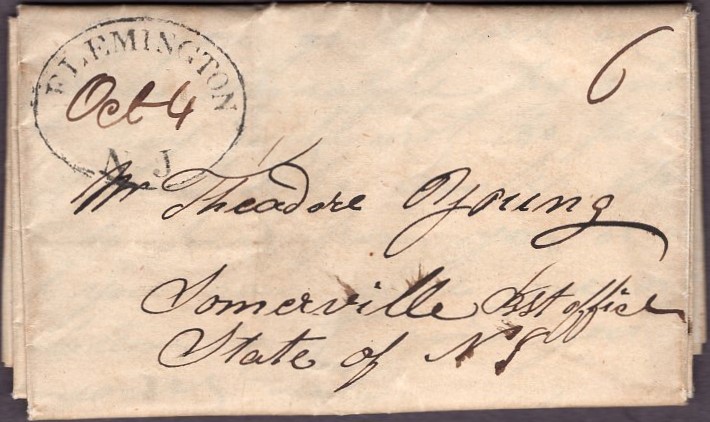 FLEMINGTON
N J
Oct 4
6
Mr Theadore Young
Somerville Post office
State of N J